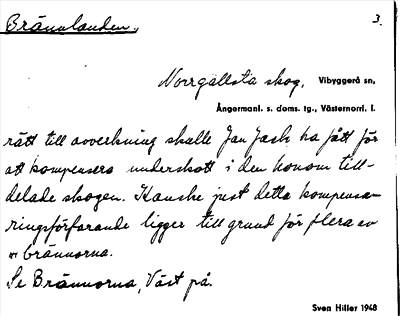 Brännlanden.
3.
Norrgällsta skog, Vibyggerå sn,
Ångermanl. s. doms. tg., Västernorrl. l.
rätt till avverkning skulle Jan Jack ha fått för
att kompensera underskott i den honom till-
delade skogen. Kanske just detta kompensa-
ringsförfarande ligger till grund för flera av
brännorna.
Se Brännorna, Väst på.
Sven Hiller 1948